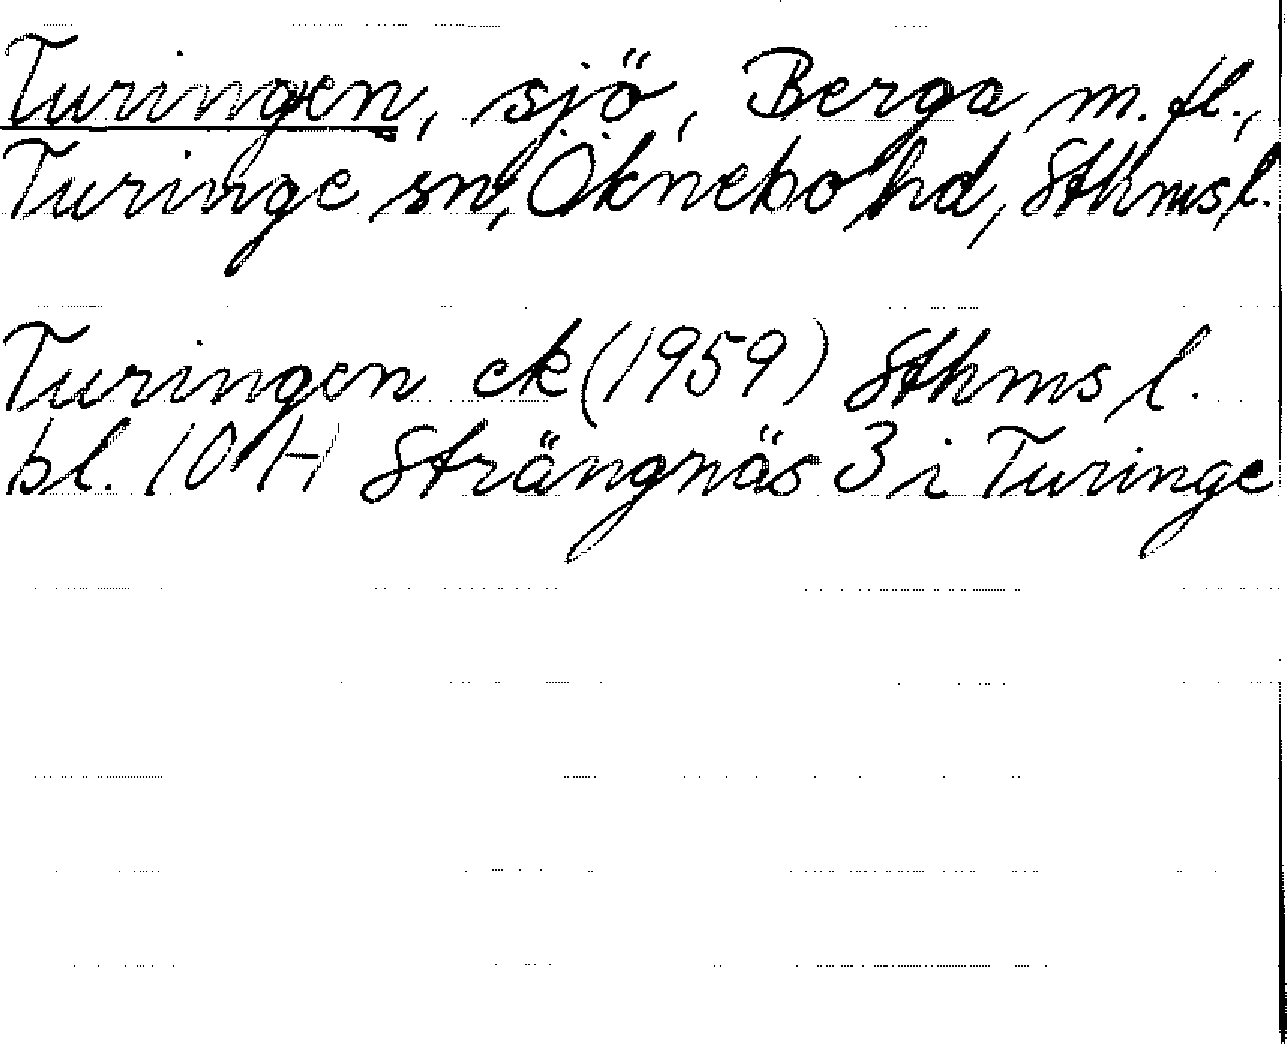 Turingen, sjö, Berga m.fl.,
Turinge sn, Öknebo hd, Sthms l.
Turingen ek (1959) Sthms l.
bl. 10 H Strängnäs 3 i Turinge